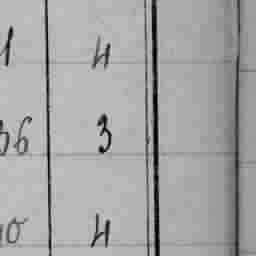 1 4
36 3
10 4